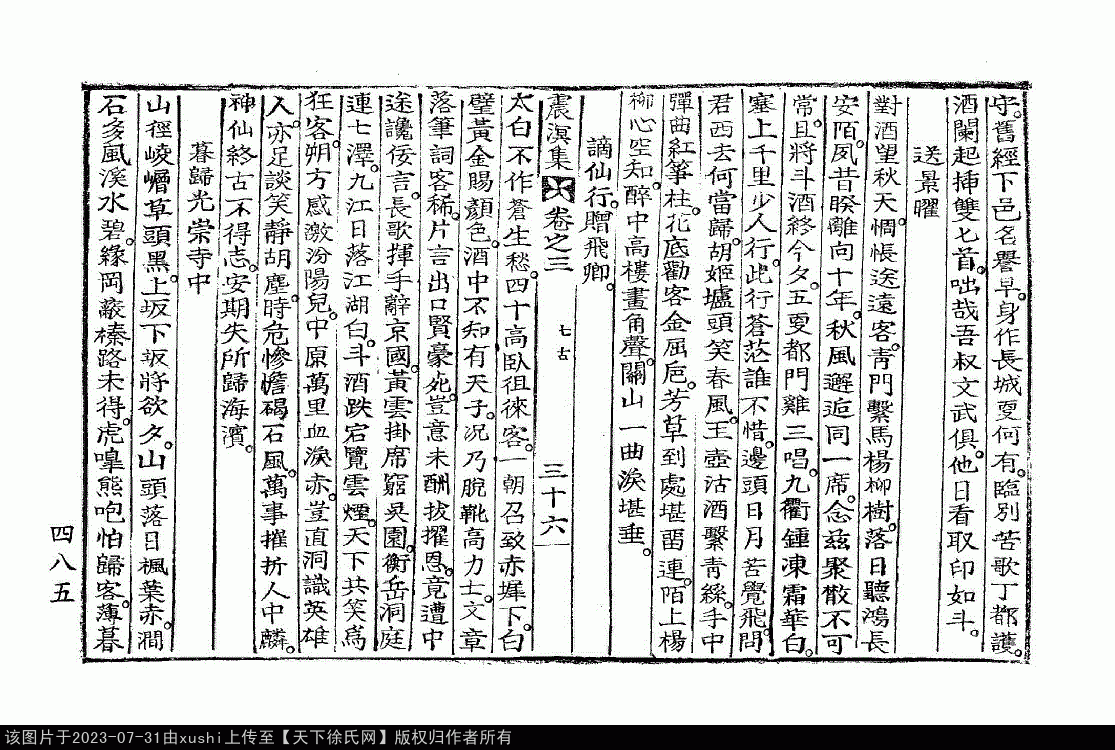 守舊經下邑名譽早身作長城更何有臨別苦歌丁都護
酒闌起揷雙匕首咄哉吾叔文武俱他日看取印如斗
送景曜
對酒望秋天惆悵送遠客青門繫馬楊柳樹落日聽鴻長
安陌夙昔睽離向十年秋風邂逅同一席念茲聚散不可
常且將斗酒終今夕五更都門雞三唱九衢鍾凍霜華白
塞上千里少人行此行蒼茫誰不惜邊頭日月苦覺飛問
君西去何當歸胡姬壚頭笑春風玉壺沽酒繫青絲手中
彈曲紅箏柱花底勸客金屈巵芳草到處堪畱連陌上楊
柳心空知醉中高樓畫角聲關山一曲淚堪垂
謫仙行贈飛卿
震溟集 卷之三 七古 三十六
太白不作蒼生愁四十高臥徂徠客一朝召致赤墀下白
璧黃金賜顏色酒中不知有天子況乃脫靴高力士文章
落筆詞客稀片言出口賢豪死豈意未酬拔擢恩竟遭中
途讒佞言長歌揮手辭京國黃雲掛席窮吳園衡岳洞庭
連七澤九江日落江湖白斗酒跌宕覽雲煙天下共笑爲
狂客朔方感激汾陽兒中原萬里血淚赤豈直洞識英雄
人亦足談笑靜胡塵時危慘憺碣石風萬事摧折人中麟
神仙終古不得志安期失所歸海濱
暮歸光崇寺中
山徑崚嶒草頭黑上坂下坂將欲夕山頭落日楓葉赤澗
石多風溪水碧緣岡蔽榛路未得虎嘷熊咆怕歸客薄暮
四八五
该图片于2023-07-31由xushi上传至【天下徐氏网】版权归作者所有